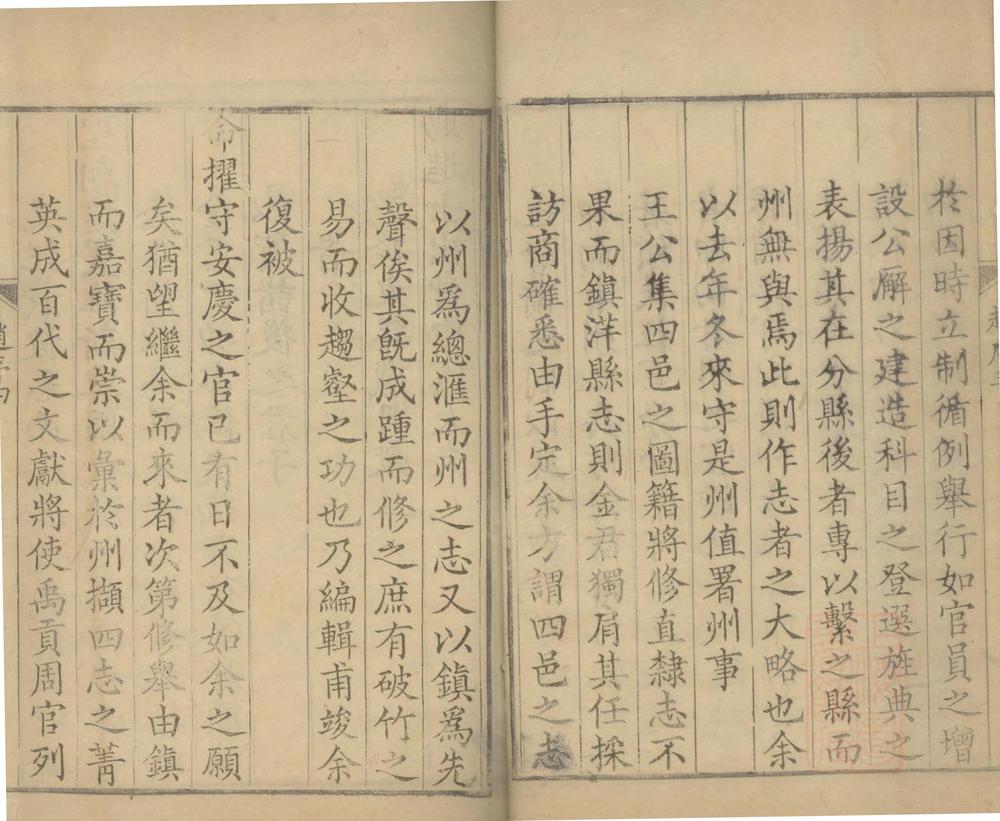 於因時立制循例舉行如官員之增
設公廨之建造科目之登選旌典之
表揚其在分縣後者專以繫之縣而
州無與焉此則作志者之大略也余
以去年冬來守是州值署州事
王公集四邑之圖籍將修直隸志不
果而鎮洋縣志則金君獨肩其任採
訪商確悉由手定余方謂四邑之志
以州為總滙而州之志又以鎮為先
聲俟其旣成踵而修之庶有破竹之
易而收趨壑之功也乃編輯甫竣余
復被
命擢守安慶之官已有日不及如余之願
矣猶望繼余而來者次第修舉由鎮
而嘉寶而崇以彙於州擷四志之菁
英成百代之文獻將使禹貢周官列